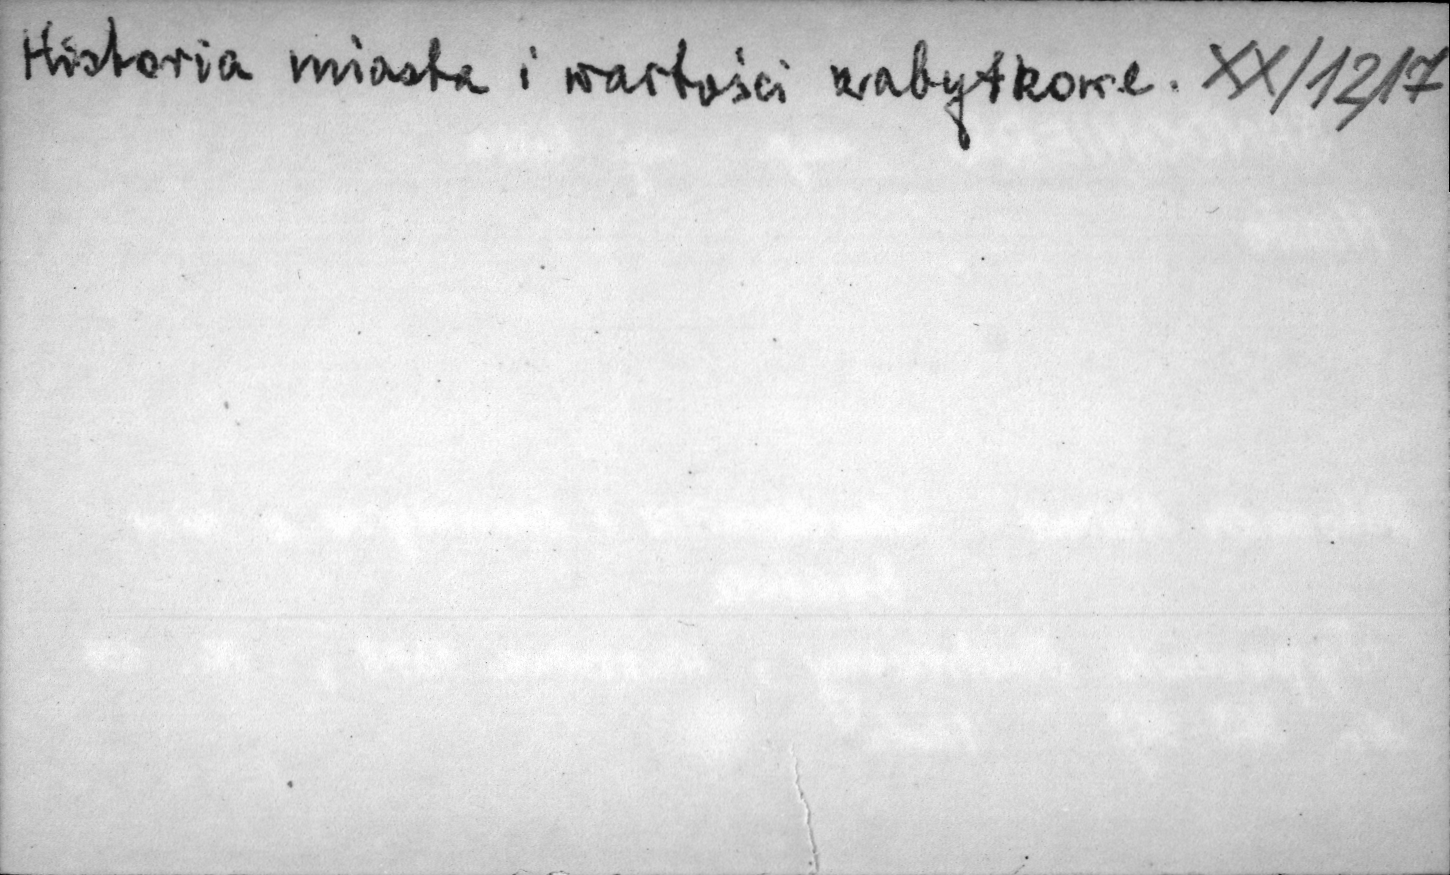 Historia miasta i wartości zabytkowe. XX/1217